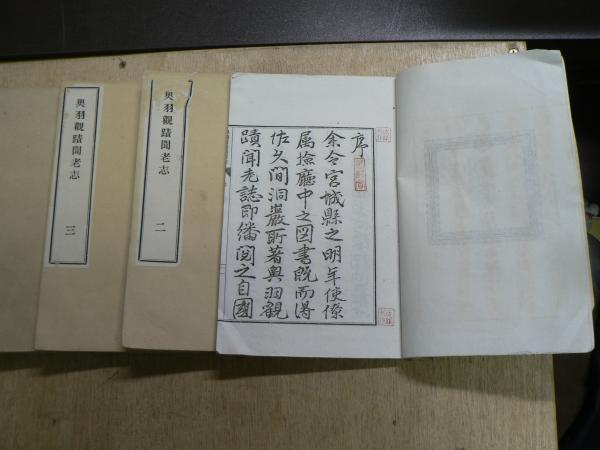 序
余令宮城縣之明年使僚
属撿廳中之図書既而得
佐久間洞巖所著奧羽觀
蹟聞老誌即繙閲之自國
奧羽觀蹟聞老志
二
奧羽觀蹟聞老志
三